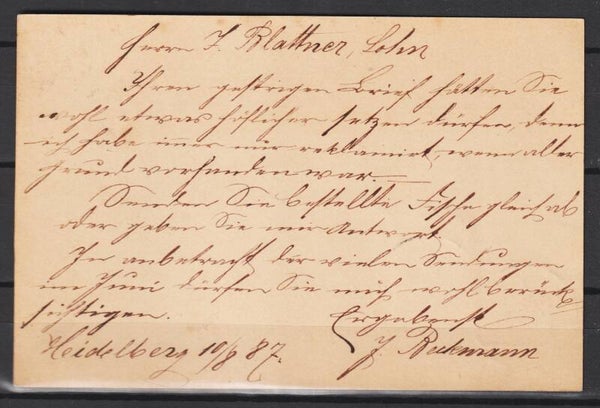 Herrn J. Blattner, Lohn
Ihren gestrigen Brief hatten Sie
wohl etwas höflicher setzen dürfen, denn
ich habe immer nur reklamirt, wenn alter
Grund vorhanden war. —
Senden Sie bestellte Fische gleich ab
oder geben Sie mir Antwort
In anbetracht der vielen Sendungen
im Juni dürfen Sie mich wohl berück-
sichtigen. Ergebenst
Heidelberg 10/8 87. J. Beckmann